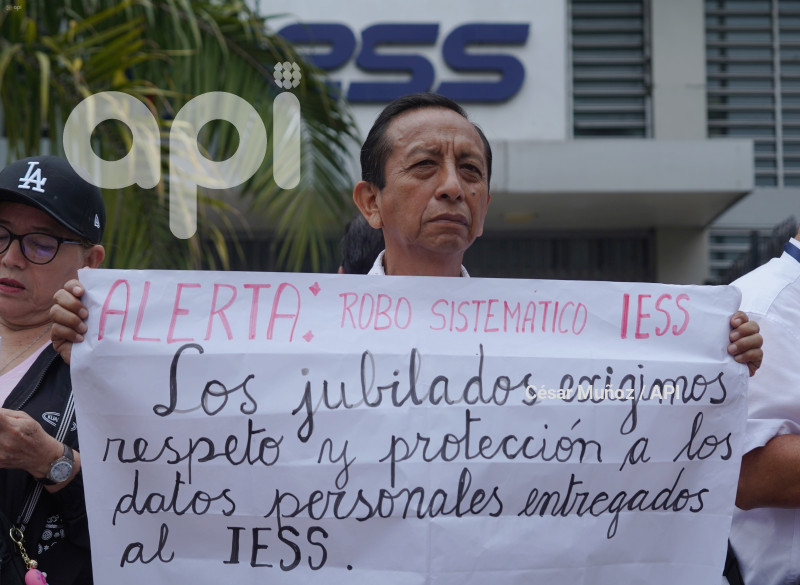 ESS
api
LA
ALERTA: ROBO SISTEMÁTICO IESS
Los jubilados exigimos
César Muñoz / API
respeto y protección a los
datos personales entregados
al IESS.